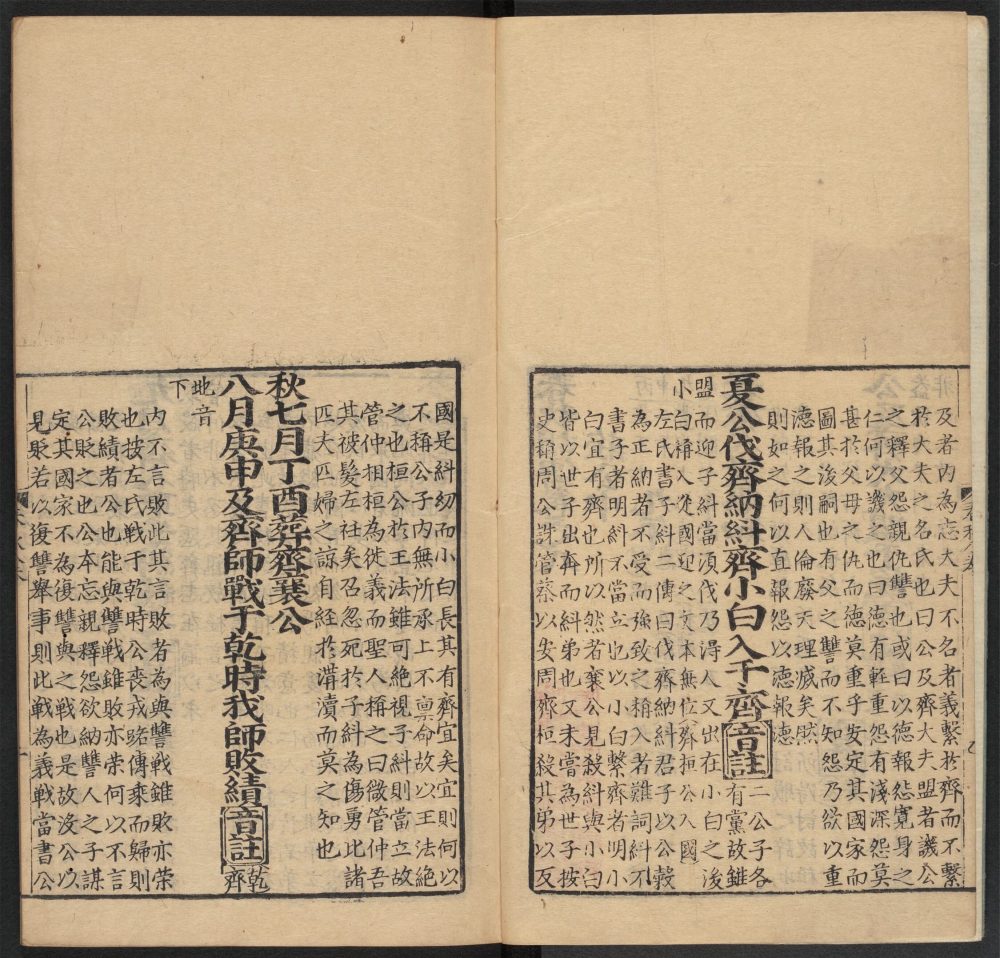 及者内為志大夫不名者義繫於齊而不繫
於大夫之名氏也曰公及齊大夫盟者譏公
之釋父怨親仇讐也或曰以德報怨寛身之
仁何以譏之也曰德有輕重怨有淺深怨莫
甚於父母之仇而德莫重乎安定其國家而
圖其後嗣也有父之讐而不知怨乃欲以重
德報之則人倫廢天理滅矣然
則如之何以直報怨以德報德
夏公伐齊納糾齊小白入于齊音註
二公子各
有黨故雖
盟而迎子糾當須伐乃得入又出在小白之後
小白稱入從國逆之文本無位齊桓公入國
左氏書子糾二傳曰伐齊納糾君子以公穀
為正納者不受而强致之稱入者難詞糾不
書子者明糾不當立也以小白繫齊者明小
白宜有齊也所以然者襄公見殺糾與小白
皆以世子出奔而糾弟也又未嘗為世子按
史稱周公誅管蔡以安周齊桓殺其弟以反
國是糾㓜而小白長其有齊宜矣宜則何以
不稱公子内無所承上不禀命故以王法絶
之也桓公於王法雖可絶視子糾則當立故
管仲相桓為徙義而聖人稱之曰微管仲吾
其被髮左衽矣召忽死於子糾為傷勇比諸
匹夫匹婦之諒自經於溝瀆而莫之知也
秋七月丁酉葬齊襄公
八月庚申及齊師戰于乾時我師敗績音註
乾齊
地音
下
内不言敗此其言敗者為與讐戰雖敗亦榮
也按左氏戰于乾時公喪戎路傳乘而歸則
敗績者公也能與讐戰雖敗亦榮何以不言
公貶之也公本忘親釋怨欲納讐人之子謀
定其國家不為復讐與之戰也是故没公以
見貶若以復讐舉事則此戰為義戰當書公